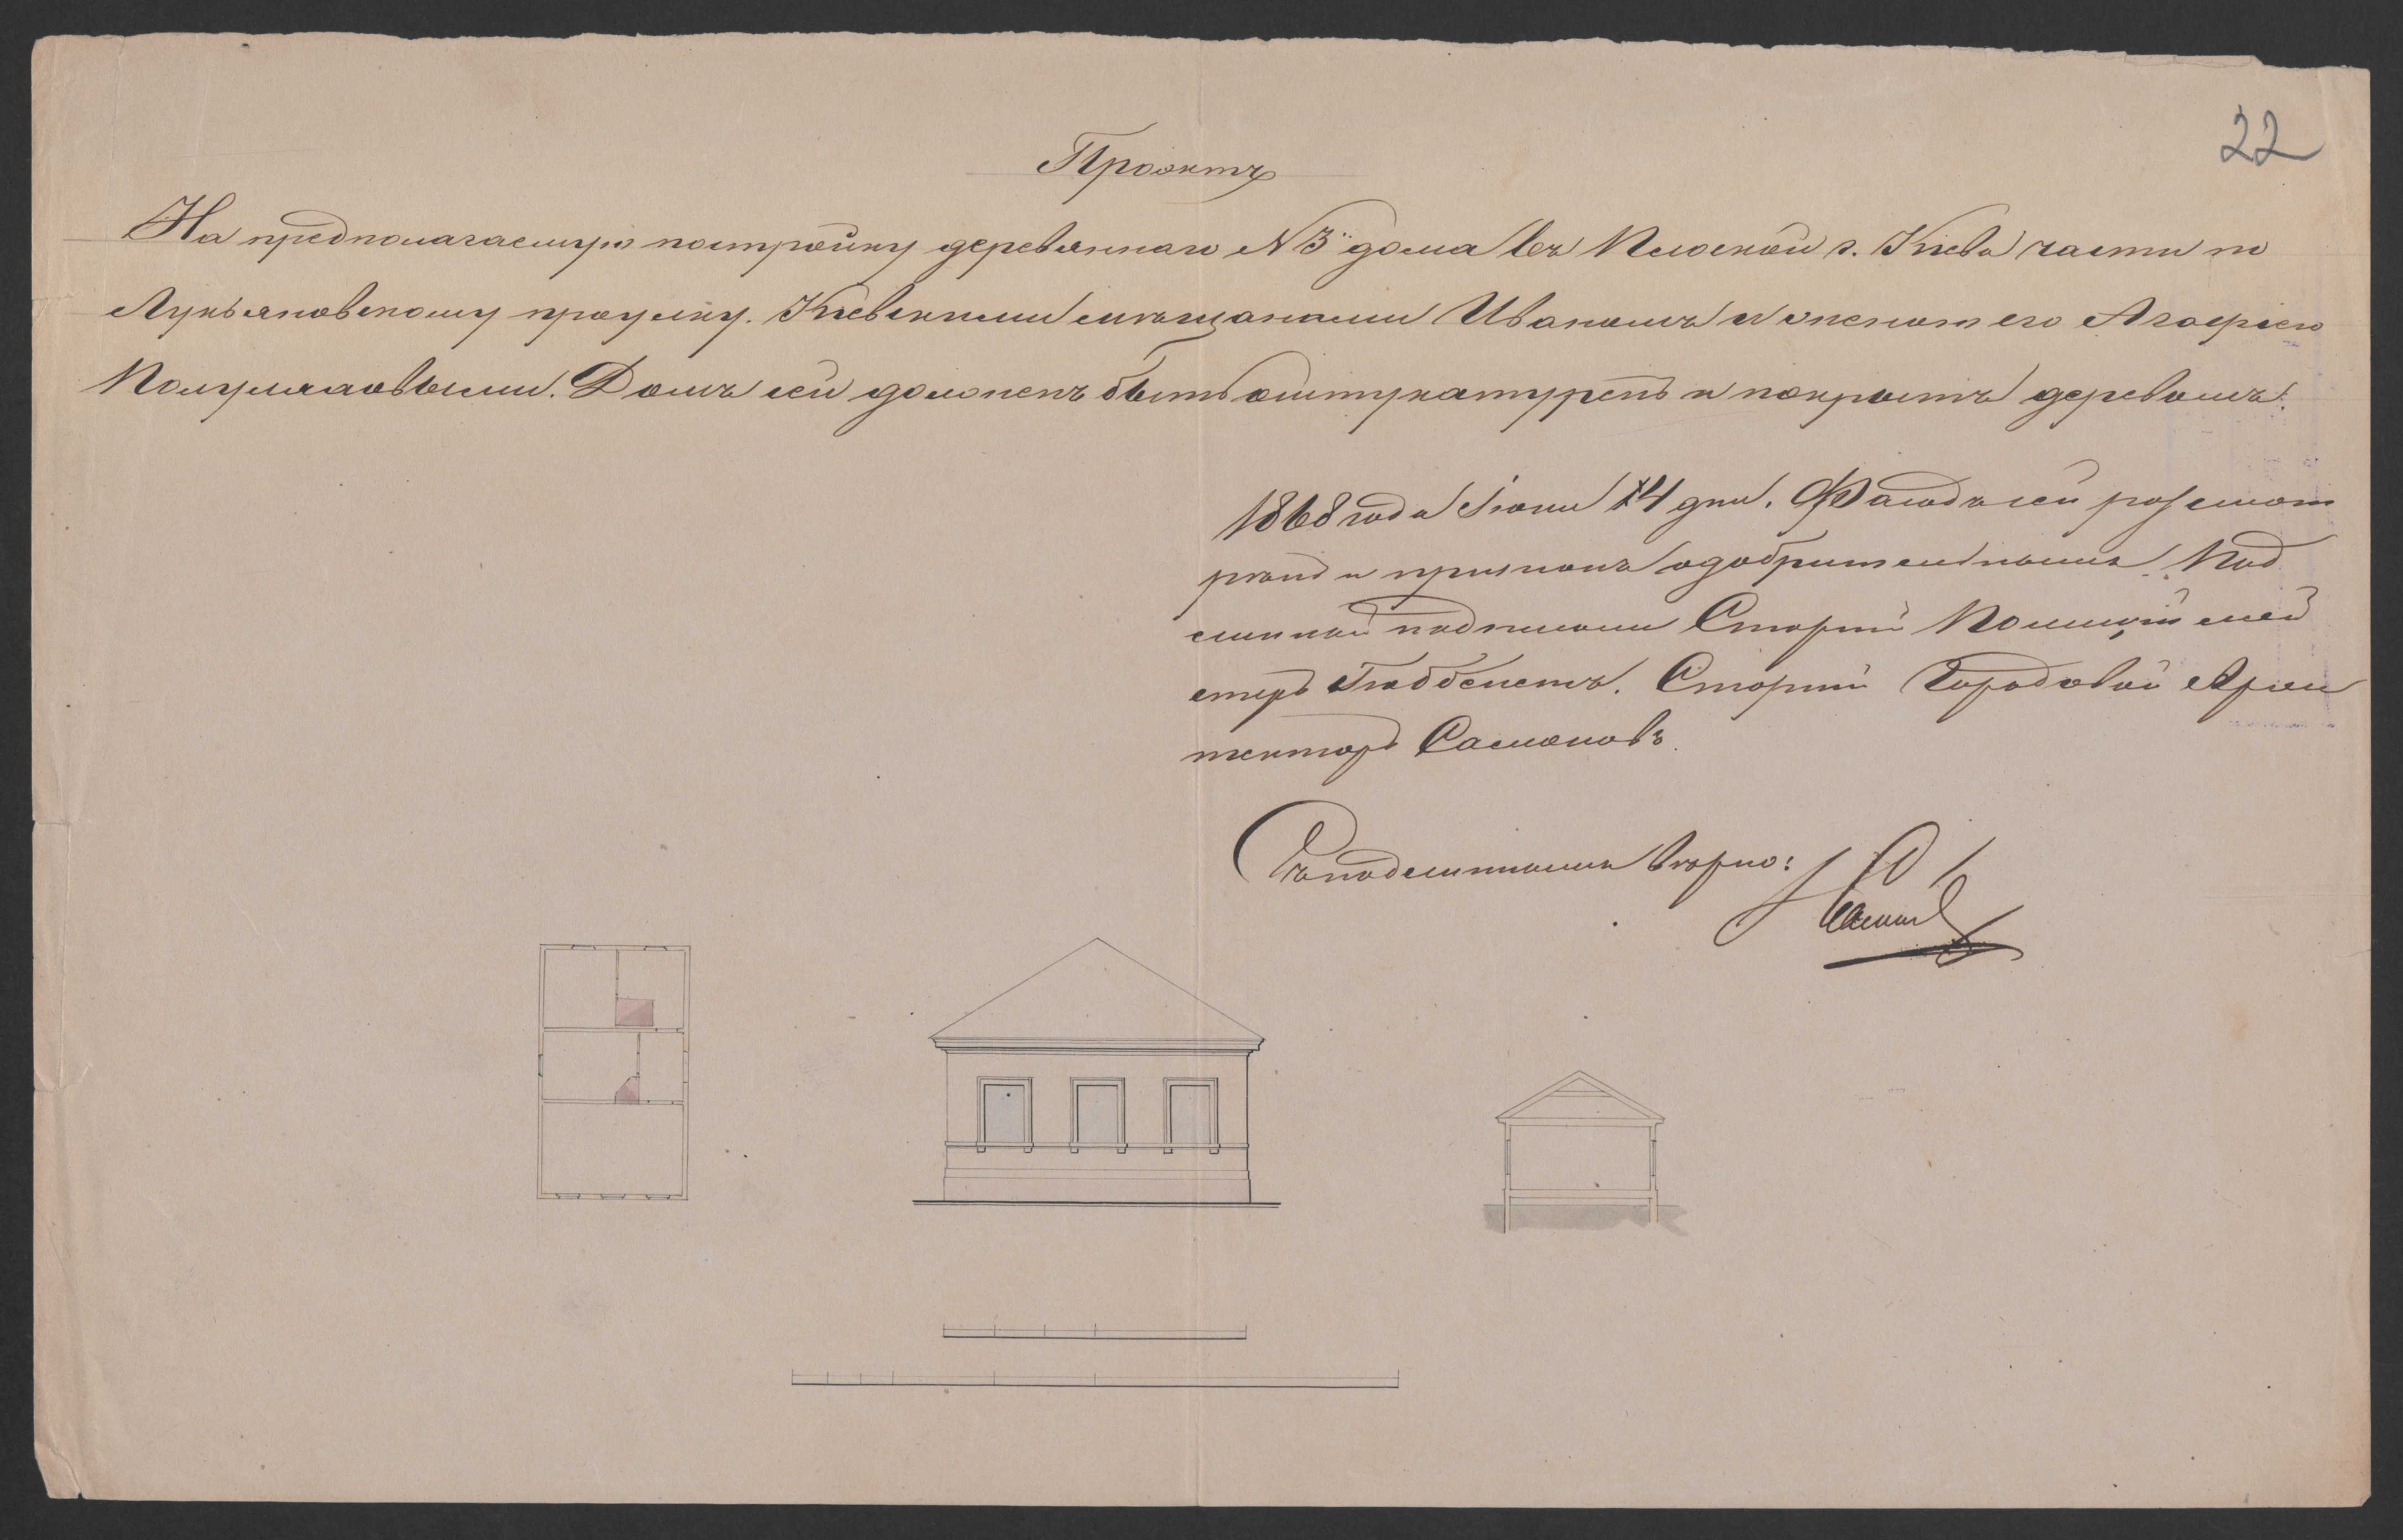 22
Проэктъ
На предполагаемую постройку деревяннаго N 3 дома въ Плоской г. Кіева части по
Лукьяновскому проулку. Кіевскими мѣщанами Иваномъ и женою его Агафіею
Домъ сей долженъ быть оштукатуренъ и покрытъ деревомъ.
1868 года Іюня 14 дня. Фасадъ сей разсмот
рѣнъ и признанъ одобрительнымъ. Под
линной подписали Старшій Полиціймей
стеръ Гюббенетъ. Старшій Городовой Архи
текторъ
Съ подлиннымъ вѣрно: